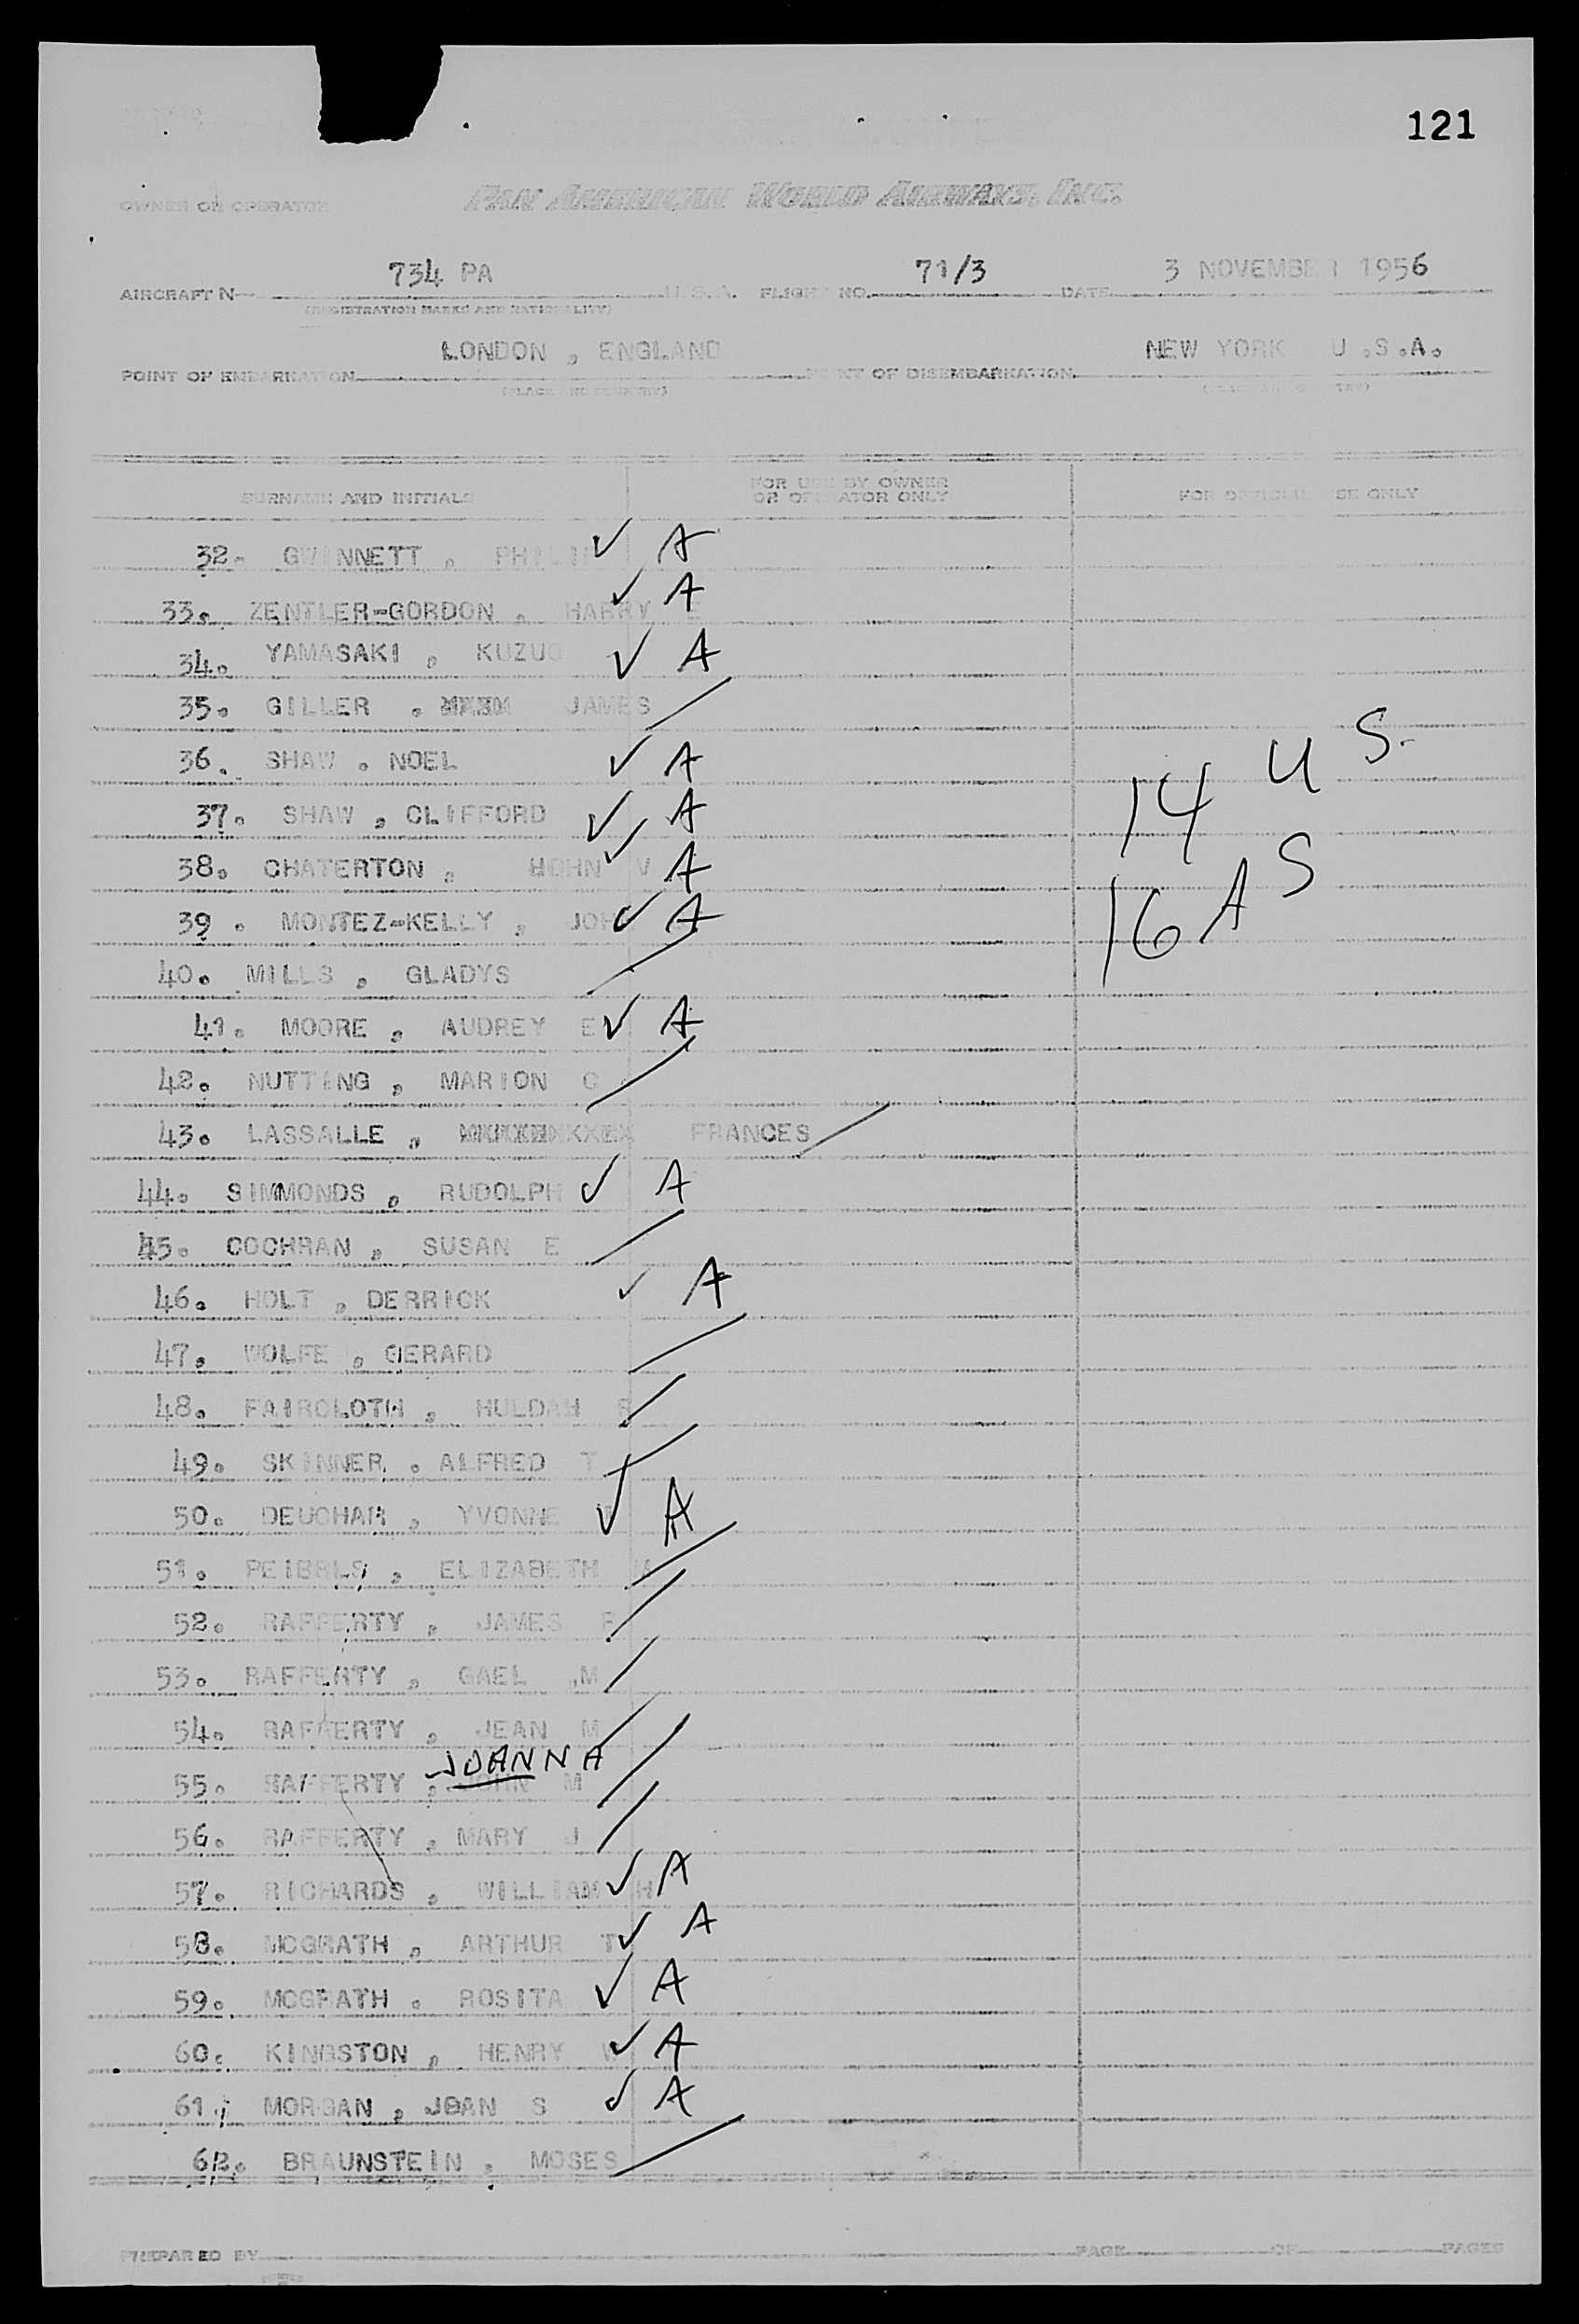 121
OWNER OR OPERATOR PAN AMERICAN WORLD AIRWAYS, INC.
734 PA 71/3 3 NOVEMBER 1956
AIRCRAFT N U.S.A. FLIGHT NO. DATE
(REGISTRATION MARKS AND NATIONALITY)
LONDON , ENGLAND NEW YORK U.S.A.
POINT OF EMBARKATION POINT OF DISEMBARKATION
(PLACE AND COUNTRY) (PLACE AND COUNTRY)
SURNAME AND INITIALS FOR USE BY OWNER OR OPERATOR ONLY FOR OFFICIAL USE ONLY
32. GWINNETT , PHILIP ✓ A
33. ZENTLER-GORDON , HARRY E ✓ A
34. YAMASAKI , KUZUO ✓ A
35. GILLER , JAMES /
36. SHAW , NOEL ✓ A
37. SHAW , CLIFFORD ✓ A
14 U S.
38. CHATERTON , JOHN V ✓ A
39. MONTEZ-KELLY , JOHN ✓ A
16 A S
40. MILLS , GLADYS /
41. MOORE , AUDREY E ✓ A
42. NUTTING , MARION G /
43. LASSALLE , FRANCES /
44. SIMMONDS , RUDOLPH ✓ A
45. COCHRAN , SUSAN E /
46. HOLT , DERRICK ✓ A
47. WOLFE , GERARD /
48. FAIRCLOTH , HULDAH /
49. SKINNER , ALFRED T /
50. DEUCHAR , YVONNE ✓ A
51. PEIERLS , ELIZABETH /
52. RAFFERTY , JAMES /
53. RAFFERTY , GAEL M /
54. RAFFERTY , JEAN M /
JOANNA
55. RAFFERTY , JOHN M /
56. RAFFERTY , MARY J /
57. RICHARDS , WILLIAM H ✓ A
58. MCGRATH , ARTHUR T ✓ A
59. MCGRATH , ROSITA ✓ A
60. KINGSTON , HENRY W ✓ A
61. MORGAN , JEAN S ✓ A
62. BRAUNSTEIN , MOSES /
PREPARED BY PAGE OF PAGES